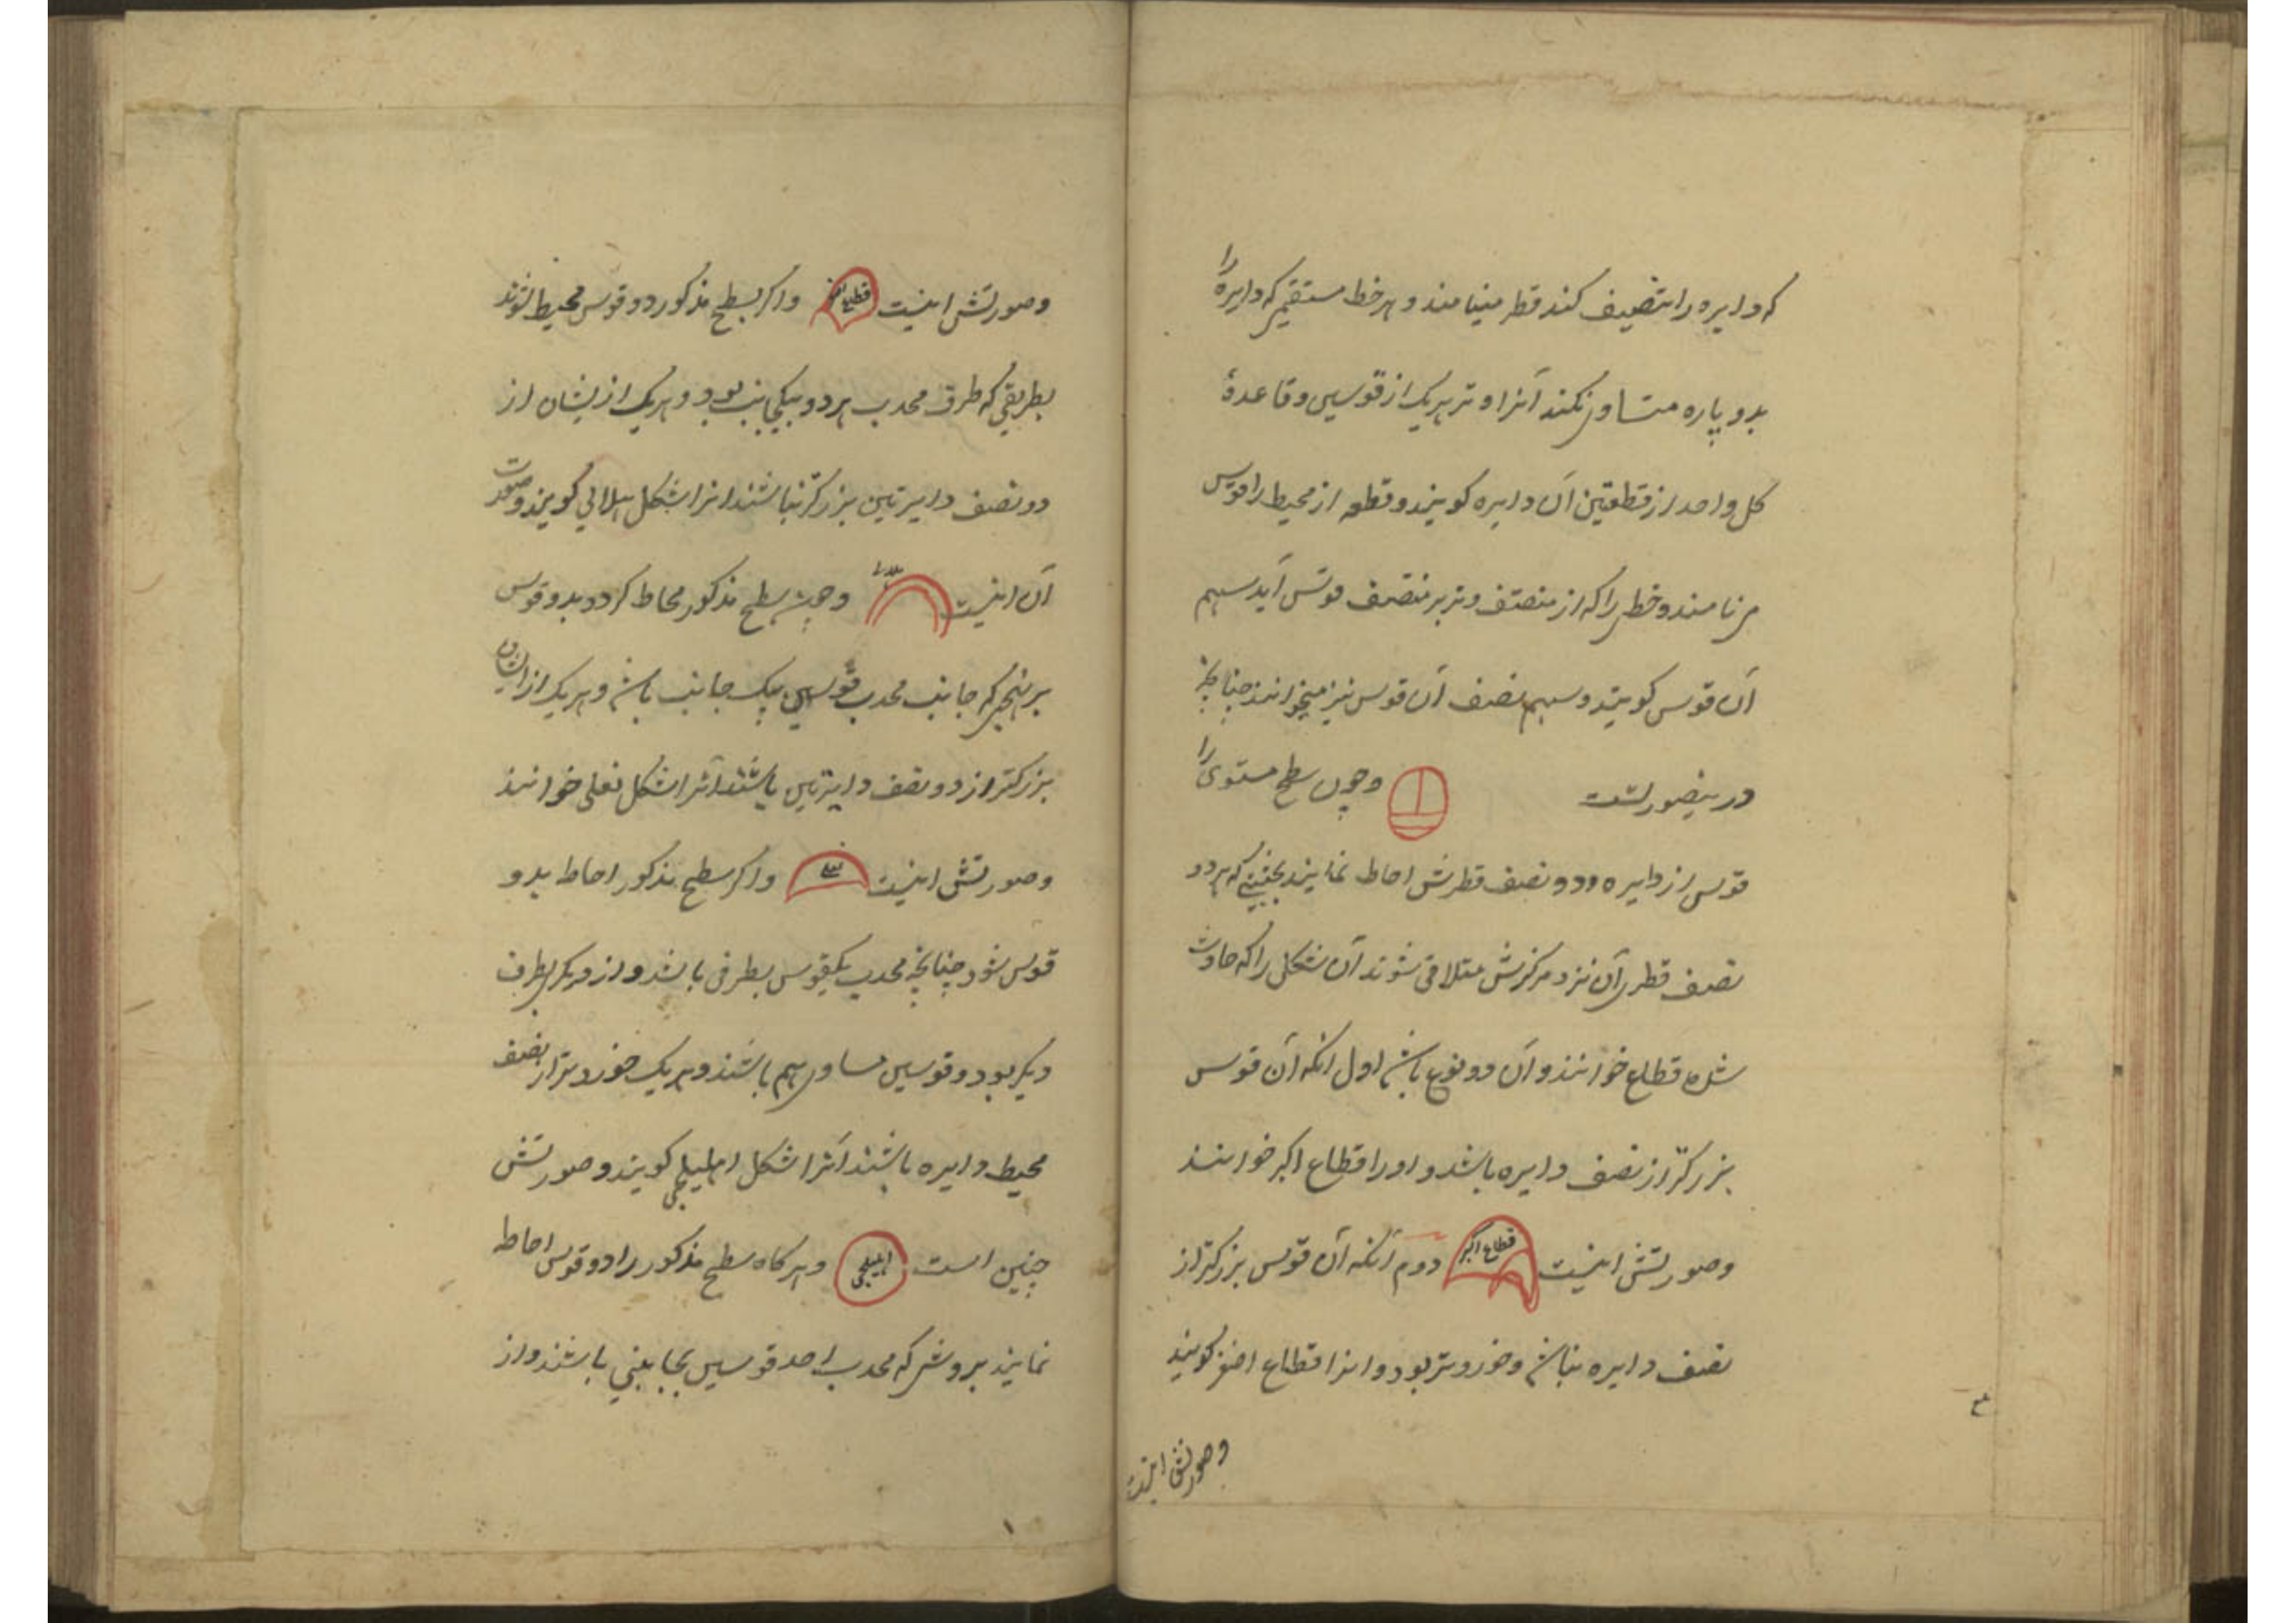 که دایره را تنصیف کند قطر مینامند و هر خط مستقیم که دایره را
بدو پاره متساوی نکند آنرا وتر هر یک از قوسین و قاعدهٔ
کل واحد از قطعتین آن دایره کویند و قطعه از محیط را قوس
می نامند و خطی را که از منتصف وتر بر منتصف قوس آید سهم
آن قوس کویند و سهم نصف آن قوس نیز میخوانند چنانچه
درینصورتست
و چون سطح مستوی را
قوسی از دایره و دو نصف قطرش احاطه نمایند بحیثیتی که هر دو
نصف قطر آن نزد مرکزش متلاقی شوند آن شکلی را که حادث
شده قطاع خوانند و آن دو نوع باشد اول آنکه آن قوس
بزرکتر از نصف دایره باشد و او را قطاع اکبر خوانند
وصورتش اینست قطاع اکبر دوم آنکه آن قوس بزرکتر از
نصف دایره نباشد و خوردتر بود و انرا قطاع اصغر کویند
وصورتش اینست
وصورتش اینست قطاع اصغر و اکر بسطح مذکور دو قوس محیط شوند
بطریقی که طرف محدب هر دو بیکجانب بود و هر یک ازیشان از
دو نصف دایرتین بزرکتر نباشند انرا شکل هلالی کویند و صورت
آن اینست هلالی و چون سطح مذکور محاط کردد بدو قوس
بر نهجی که جانب محدب قوسین بیک جانب باشد و هر یک از ایشان
بزرکتر از دو نصف دایرتین باشند آنرا شکل نعلی خوانند
وصورتش اینست نعلی و اکر سطح مذکور احاطه بدو
قوس شود چنانچه محدب یکقوس بطرفی باشد و از دیکر بطرف
دیکر بود و قوسین مساوی هم باشند و هر یک خوردتر از نصف
محیط دایره باشند آنرا شکل اهلیلجی کویند و صورتش
چنین است اهلیلجی و هر کاه سطح مذکور را دو قوس احاطه
نمایند بروشی که محدب احد قوسین بجانبی باشند و از